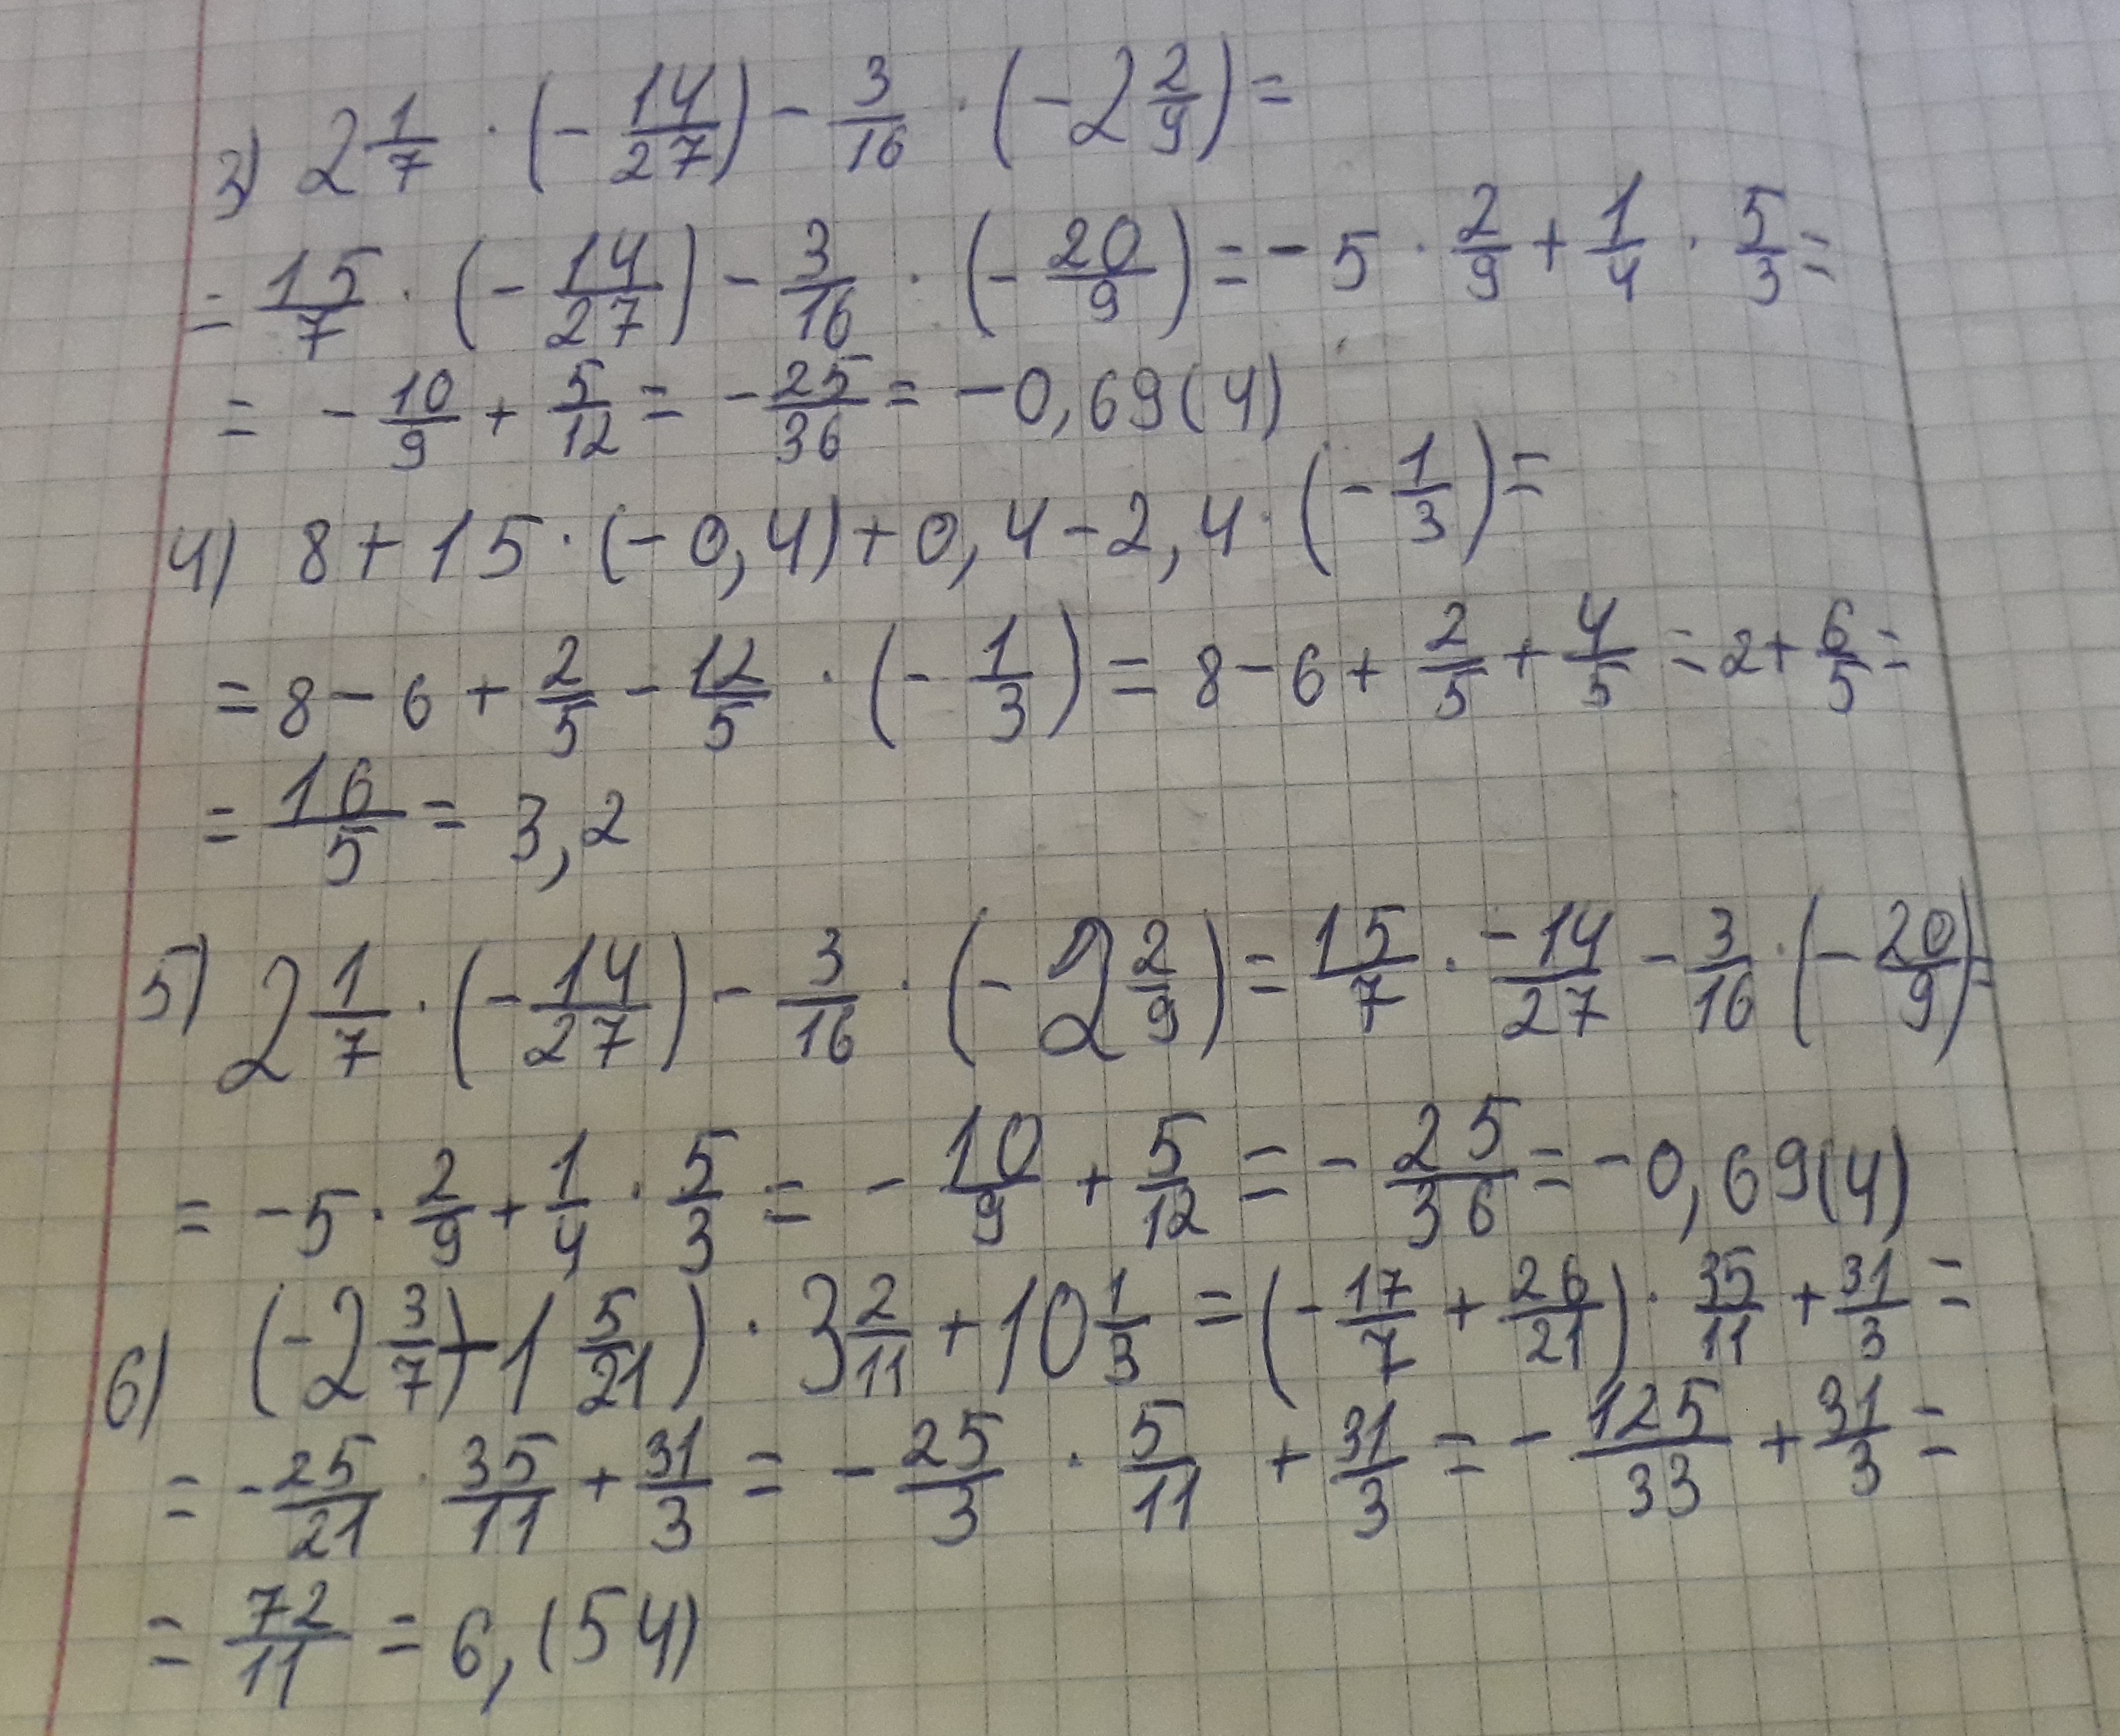 3) 2 1/7 · (- 14/27) - 3/16 · (-2 2/9) =
= 15/7 · (- 14/27) - 3/16 · (- 20/9) = - 5 · 2/9 + 1/4 · 5/3 =
= - 10/9 + 5/12 = - 25/36 = -0,69(4)
4) 8 + 15 · (-0,4) + 0,4 - 2,4 · (- 1/3) =
= 8 - 6 + 2/5 - 12/5 · (- 1/3) = 8 - 6 + 2/5 + 4/5 = 2 + 6/5 =
= 16/5 = 3,2
5) 2 1/7 · (- 14/27) - 3/16 · (-2 2/9) = 15/7 · -14/27 - 3/16 · (- 20/9) =
= -5 · 2/9 + 1/4 · 5/3 = - 10/9 + 5/12 = - 25/36 = -0,69(4)
6) (-2 3/7) + 1 5/21) · 3 2/11 + 10 1/3 = (- 17/7 + 26/21) · 35/11 + 31/3 =
= - 25/21 · 35/11 + 31/3 = - 25/3 · 5/11 + 31/3 = - 125/33 + 31/3 =
= 72/11 = 6,(54)